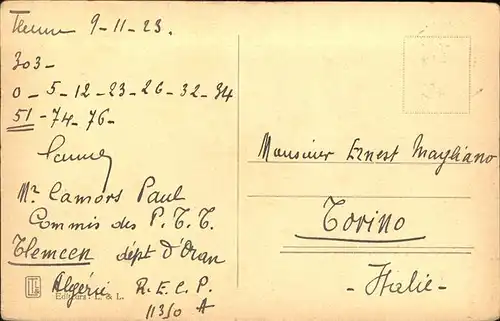 Tlemcen 9-11-23.
303-
0-5-12-23-26-32-34
51-74-76-
Mr Camors Paul
Commis des P.T.T.
Tlemcen dépt d'Oran
Algérie R.E.C.P.
11310 A
Editeurs: L. & L.
Monsieur Ernest Magliano
Torino
- Italie -